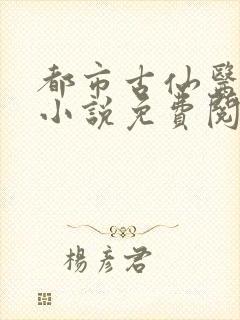 都市古仙醫
小說免費閱
楊彥君